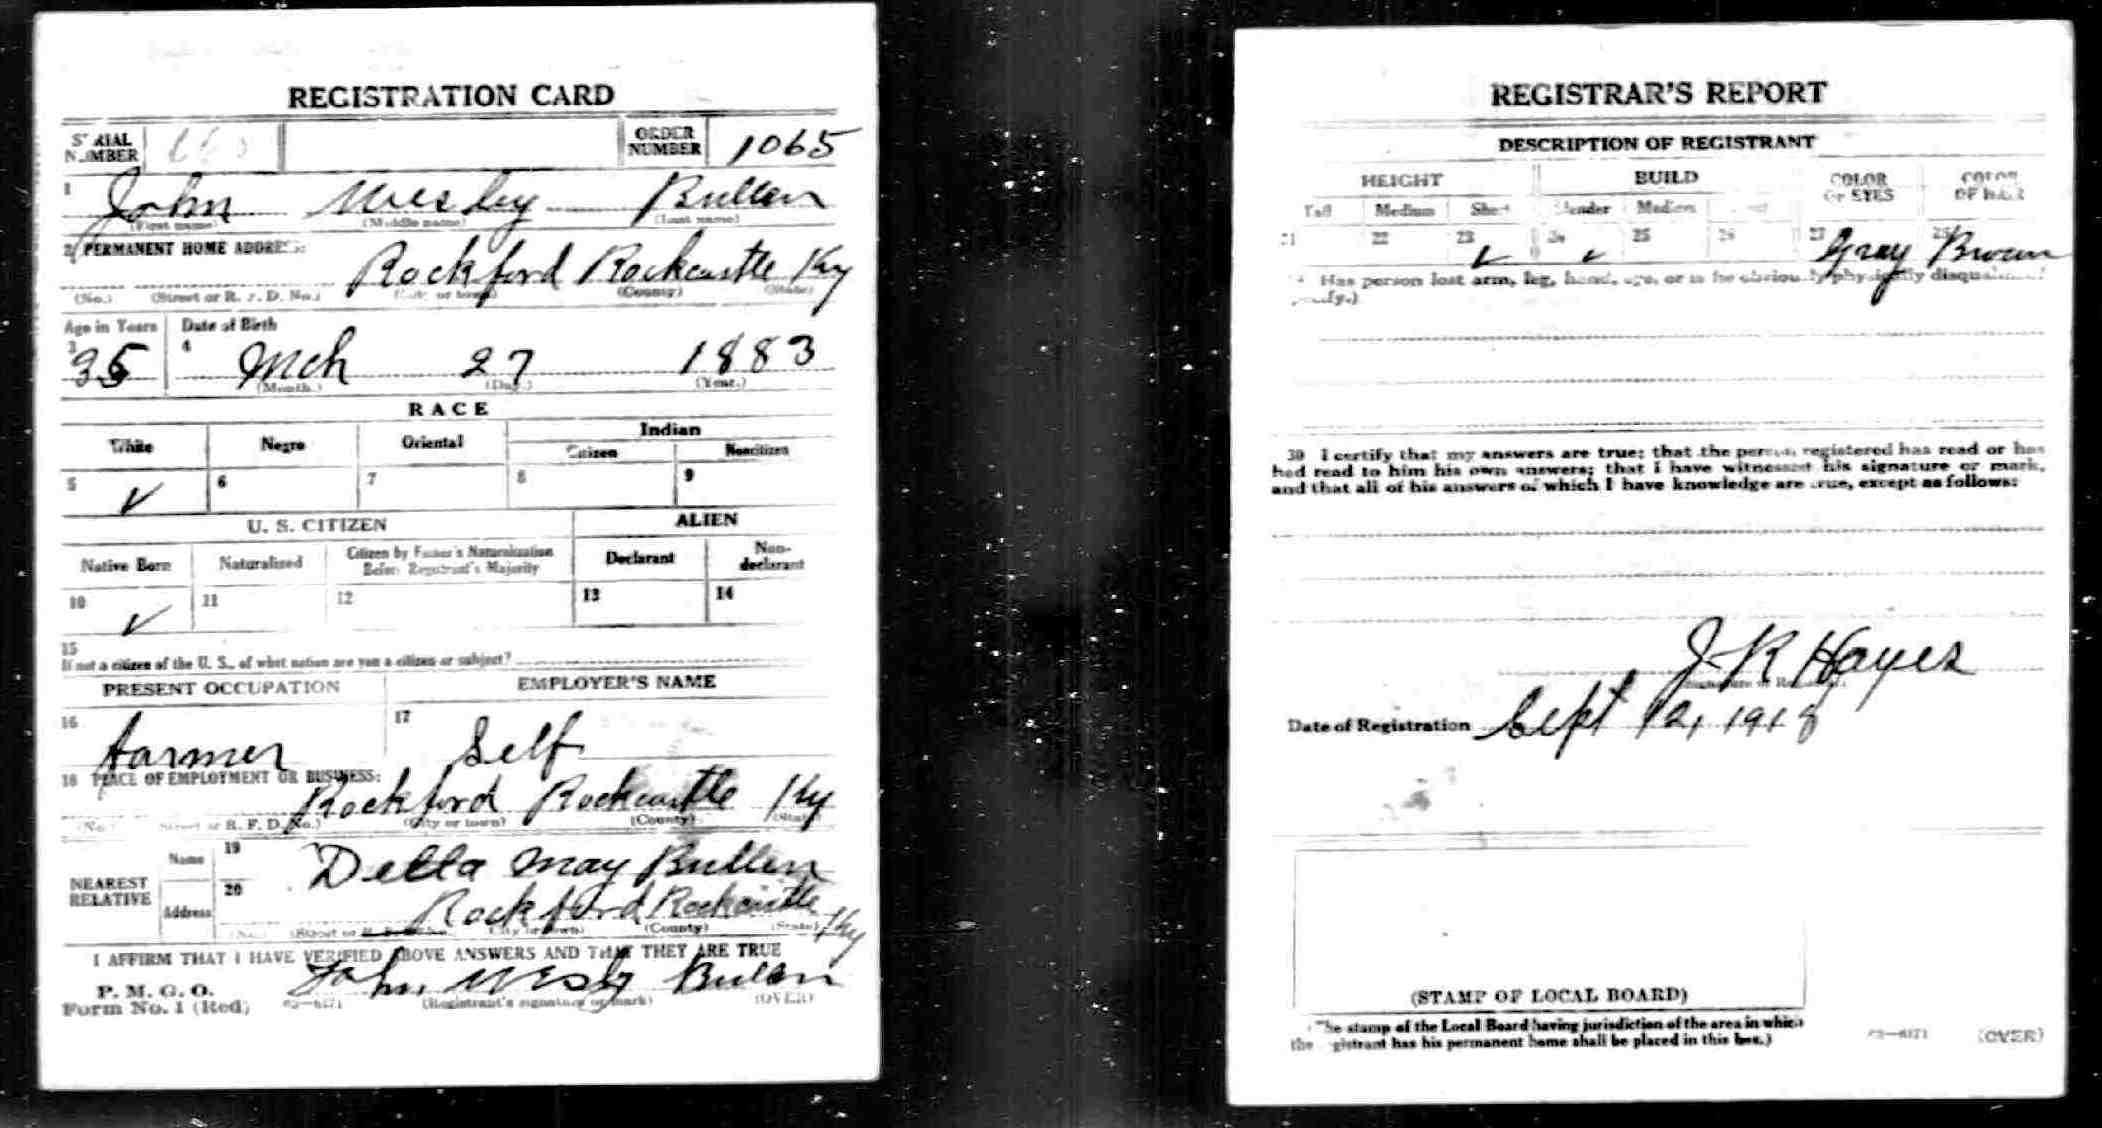 REGISTRATION CARD
SERIAL NUMBER
ORDER NUMBER 1065
1 John Wesley Bullen
(First name) (Middle name) (Last name)
2 PERMANENT HOME ADDRESS:
Rockford Rockcastle Ky
(No.) (Street or R. F. D. No.) (City or town) (County) (State)
Age in Years Date of Birth
3 35 4 Mch 27 1883
(Month.) (Day.) (Year.)
RACE
White Negro Oriental Indian
Citizen Noncitizen
5 ✓ 6 7 8 9
U. S. CITIZEN ALIEN
Native Born Naturalized Citizen by Father's Naturalization Before Registrant's Majority Declarant Non-declarant
10 ✓ 11 12 13 14
15
If not a citizen of the U. S., of what nation are you a citizen or subject?
PRESENT OCCUPATION EMPLOYER'S NAME
16 farmer 17 Self
18 PLACE OF EMPLOYMENT OR BUSINESS:
Rockford Rockcastle Ky
(No.) (Street or R. F. D. No.) (City or town) (County) (State)
NEAREST RELATIVE
Name 19 Della May Bullen
Address 20 Rockford Rockcastle Ky
(No.) (Street or (City or town) (County) (State)
I AFFIRM THAT I HAVE VERIFIED ABOVE ANSWERS AND THAT THEY ARE TRUE
P. M. G. O.
Form No. 1 (Red) John Wesly Bullen
(Registrant's signature or mark) (OVER)
REGISTRAR'S REPORT
DESCRIPTION OF REGISTRANT
HEIGHT BUILD COLOR OF EYES COLOR OF HAIR
Tall Medium Short Slender Medium Stout
21 22 23 ✓ 24 ✓ 25 26 27 Gray 28 Brown
29 Has person lost arm, leg, hand, eye, or is he obviously physically disqualified?
(Specify.)
30 I certify that my answers are true; that the person registered has read or has
had read to him his own answers; that I have witnessed his signature or mark,
and that all of his answers of which I have knowledge are true, except as follows:
J. R Hayes
(Signature of Registrar)
Date of Registration Sept 12, 1918
(STAMP OF LOCAL BOARD)
(The stamp of the Local Board having jurisdiction of the area in which
the registrant has his permanent home shall be placed in this box.)
03—6171 (OVER)